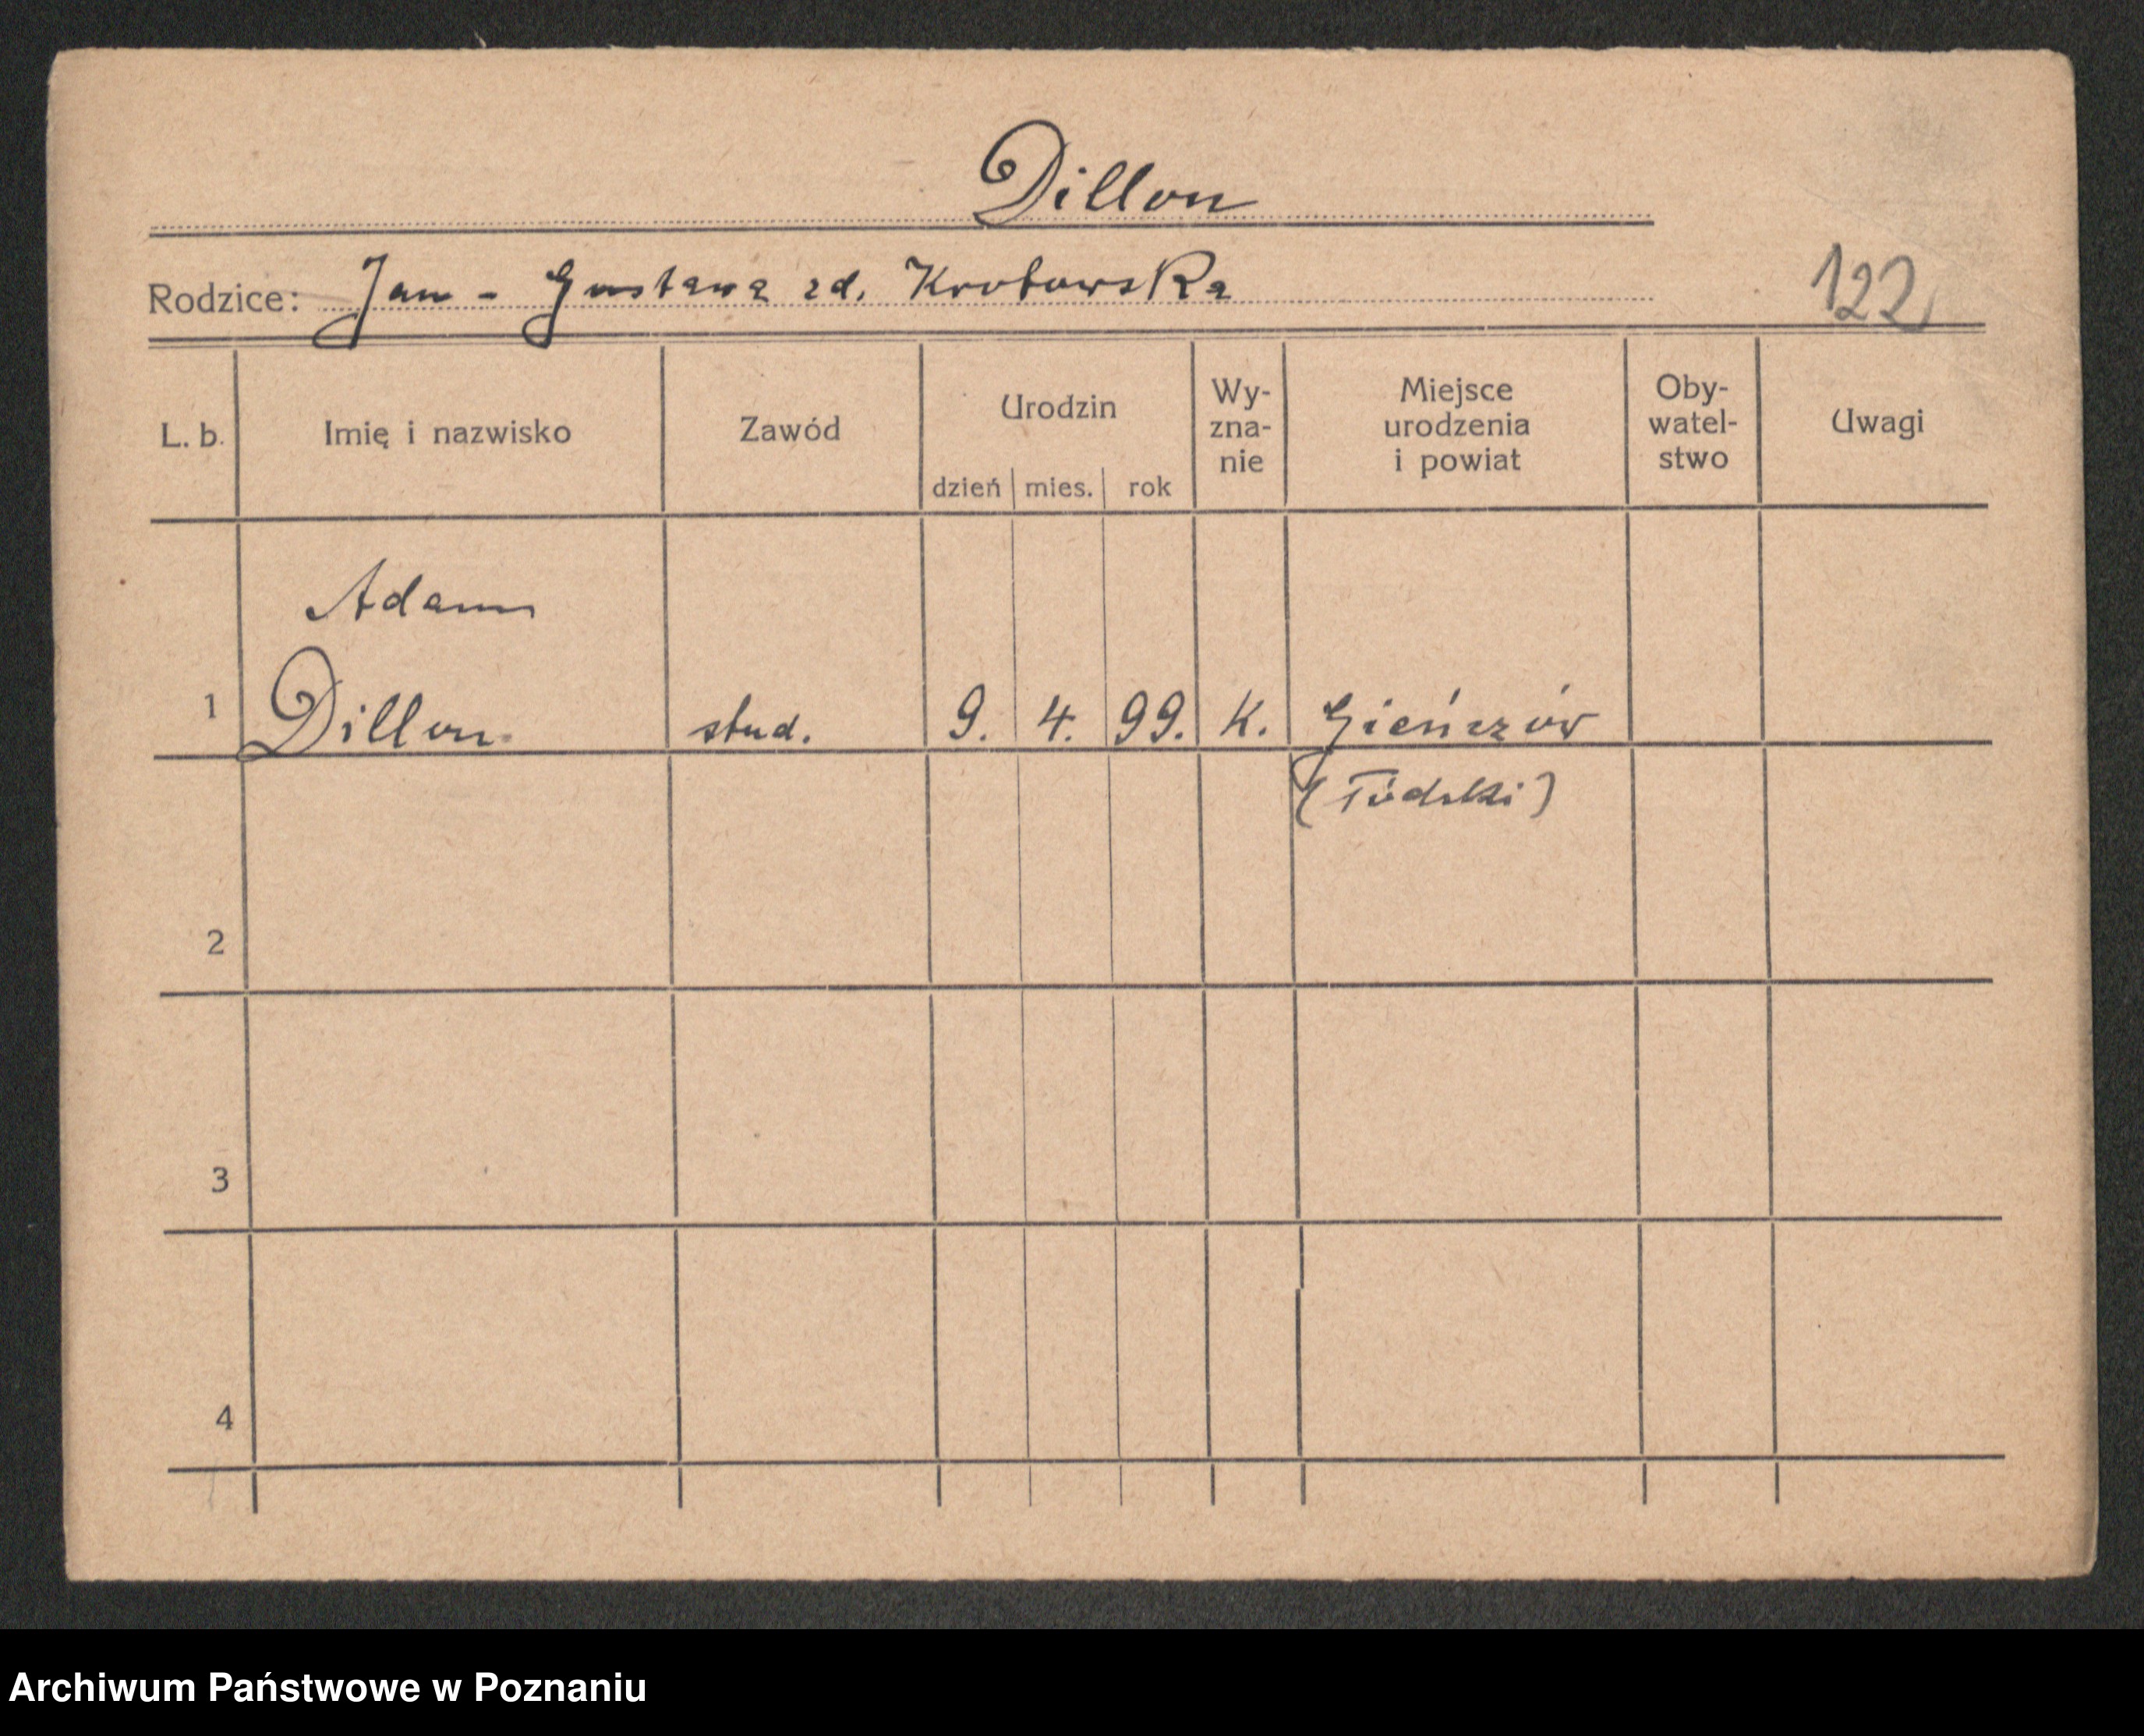 Dillon
Rodzice: Jan - Gustawa zd. Krotowska
122
L. b. Imię i nazwisko Zawód Urodzin dzień mies. rok Wy-zna-nie Miejsce urodzenia i powiat Oby-watel-stwo Uwagi
Adam
1 Dillon stud. 9. 4. 99. K. Gieńczów
2
3
4
Archiwum Państwowe w Poznaniu